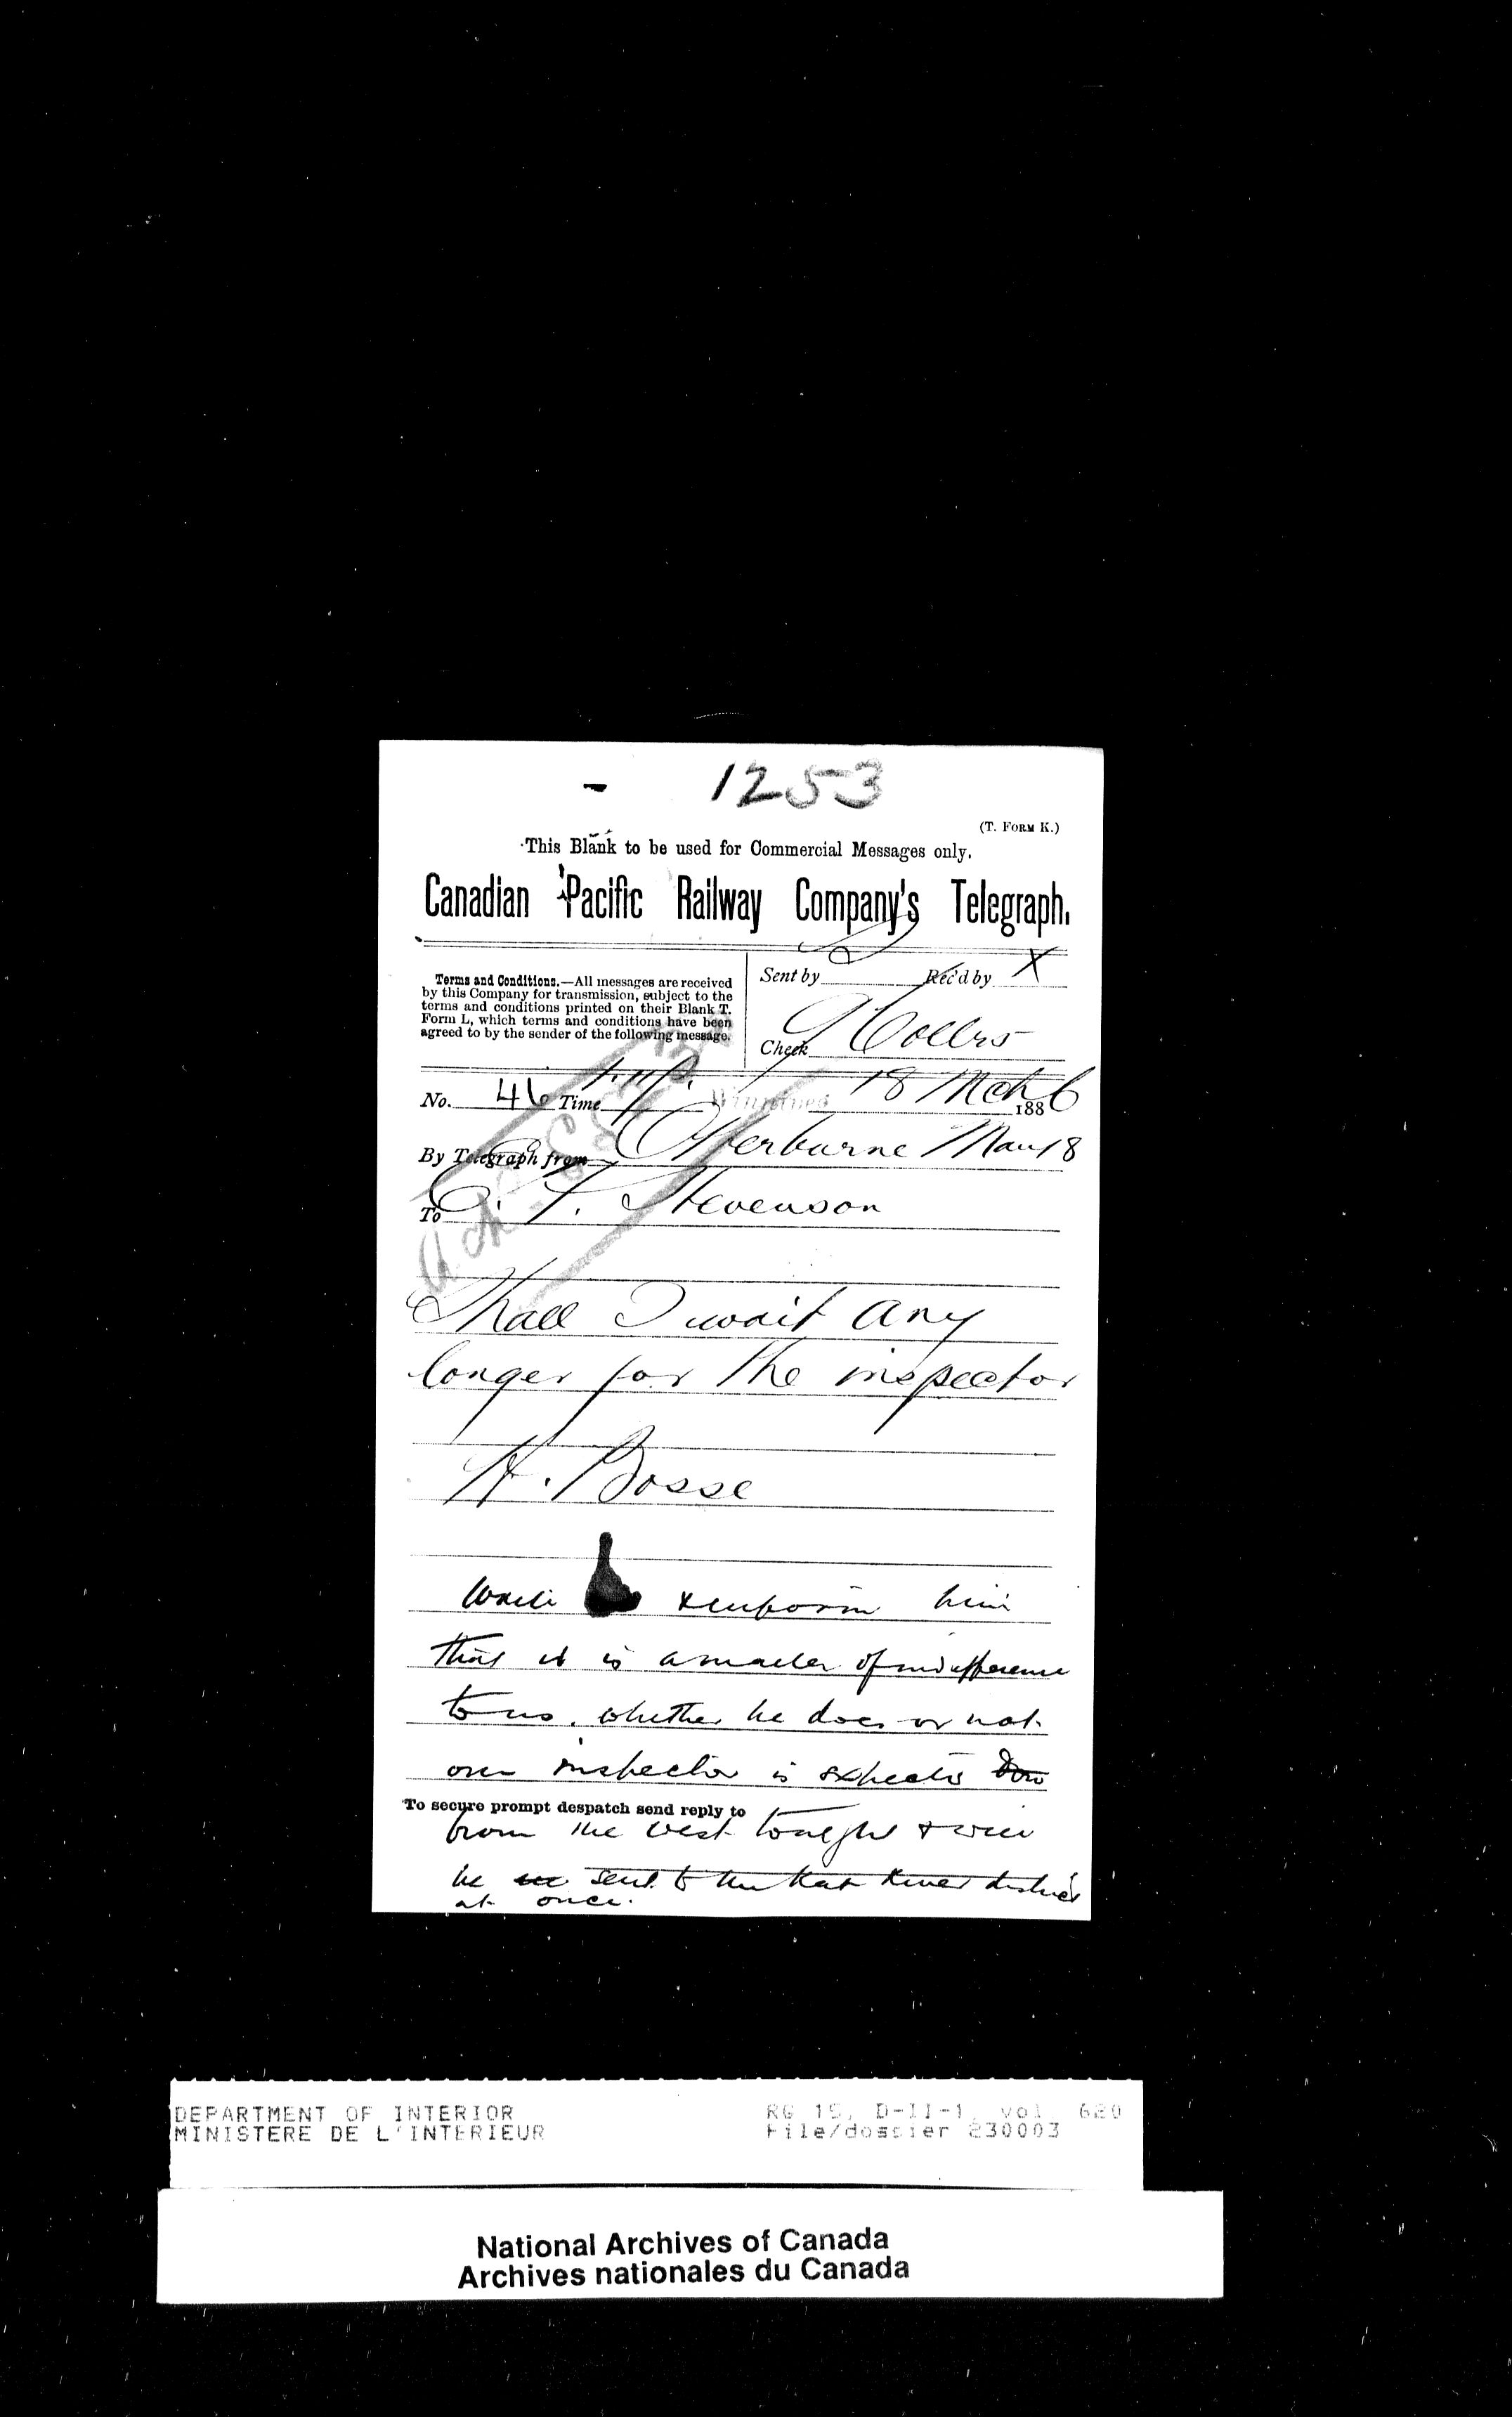 1253
(T. FORM K.)
This Blank to be used for Commercial Messages only.
Canadian Pacific Railway Company's Telegraph.
Terms and Conditions.—All messages are received
by this Company for transmission, subject to the
terms and conditions printed on their Blank T.
Form L, which terms and conditions have been
agreed to by the sender of the following message.
Sent by Rec'd by X
Check 9 Collrs
No. 46 Time Winnipeg 18 Mch 1886
By Telegraph from Otterburne Man 18
To S. Stevenson
Shall I wait any
longer for the inspector
H. Bosse
inform him
that it is a matter of indifference
to us, whether he does or not.
our inspector is expected
To secure prompt despatch send reply to
from the west tonight & will
be sent to the Rat River district
at once.
DEPARTMENT OF INTERIOR
MINISTERE DE L'INTERIEUR
RG 15, D-II-1, vol 620
File/dossier 230003
National Archives of Canada
Archives nationales du Canada